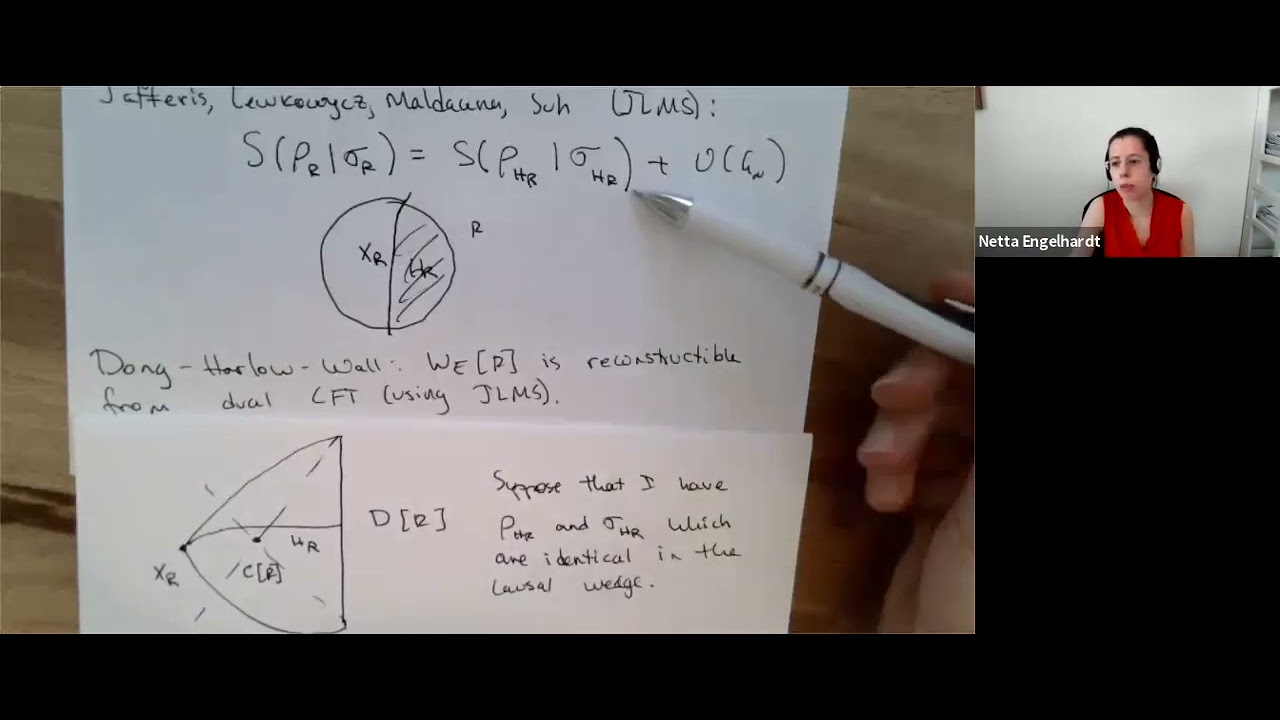 Jafferis, Lewkowycz, Maldacena, Suh (JLMS):
S(ρ_R|σ_R) = S(ρ_HR|σ_HR) + O(G_N)
R
X_R
H_R
Dong-Harlow-Wall: W_E[R] is reconstructible
from dual CFT (using JLMS).
Suppose that I have
D[R]
ρ_HR and σ_HR which
H_R
are identical in the
X_R
C[R]
causal wedge.
Netta Engelhardt